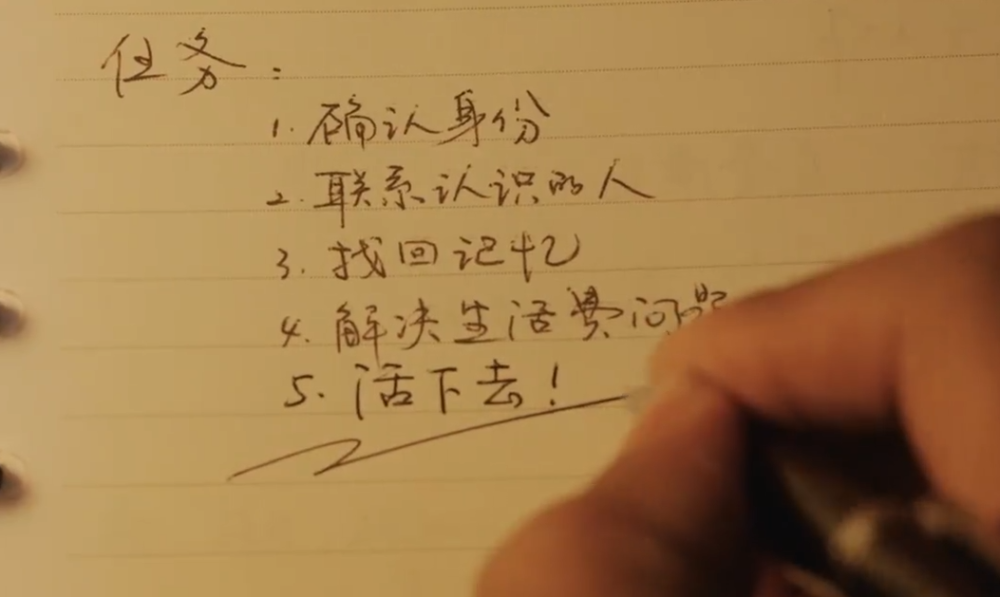 任务：
1. 确认身份
2. 联系认识的人
3. 找回记忆
4. 解决生活费问题
5. 活下去！